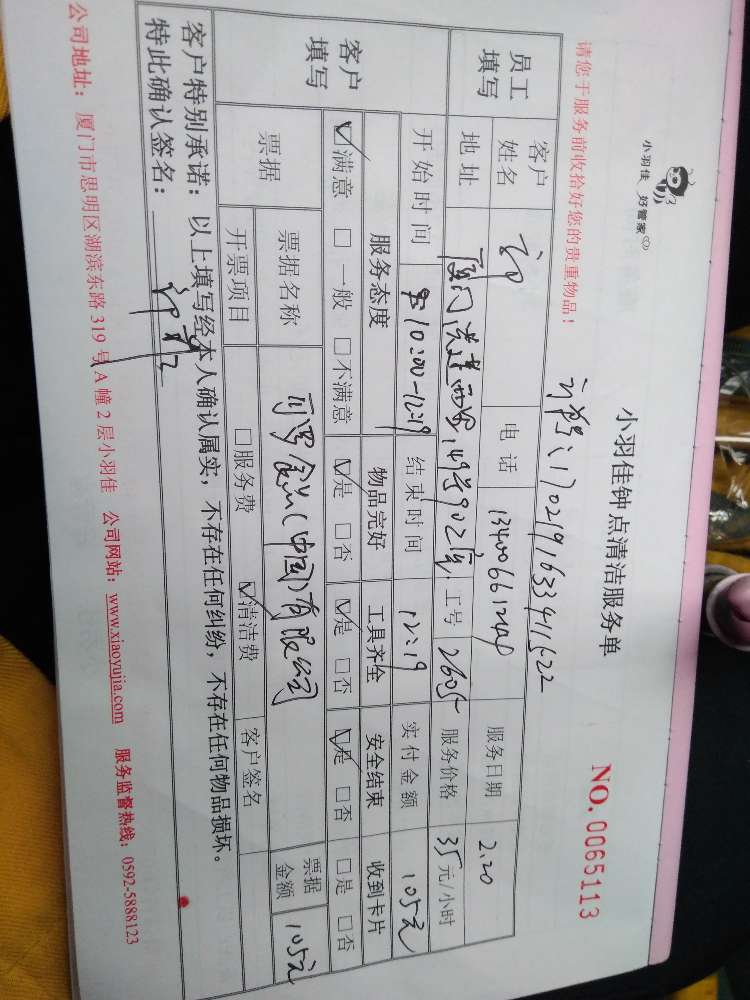 小羽佳 好管家
小羽佳钟点清洁服务单
NO. 0065113
请您于服务前收拾好您的贵重物品!
170219163341622
员工填写
客户姓名
电话
服务日期 2.20
地址 厦门 149号902室
工号 2605
服务价格 35元/小时
开始时间 10:00-12:19
结束时间 12:19
实付金额 105元
客户填写
服务态度 物品完好 工具齐全 安全结束 收到卡片
☑满意 □一般 □不满意 ☑是 □否 ☑是 □否 ☑是 □否 □是 □否
票据
票据名称 食品(中国)有限公司
票据金额 105元
开票项目 □服务费 ☑清洁费 客户签名
客户特别承诺:以上填写经本人确认属实,不存在任何纠纷,不存在任何物品损坏。
特此确认签名:
公司地址:厦门市思明区湖滨东路319号A幢2层小羽佳 公司网站:www.xiaoyujia.com 服务监督热线:0592-5888123